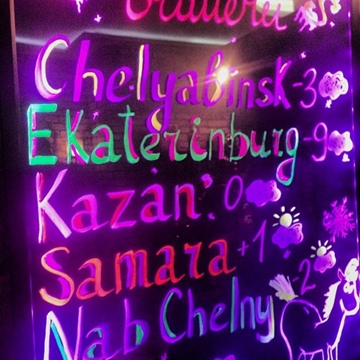 ChelyabinsK-3
EKaterinburg-9
Kazan'. 0
Samara +1
Nab Chelny 2